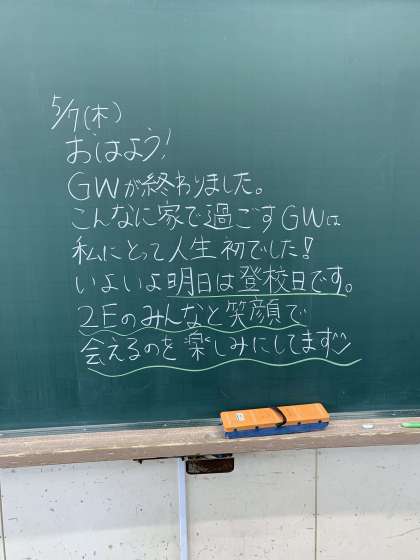 5/7(木)
おはよう!
GWが終わりました。
こんなに家で過ごすGWは
私にとって人生初でした!
いよいよ明日は登校日です。
2Eのみんなと笑顔で
会えるのを楽しみにしてます